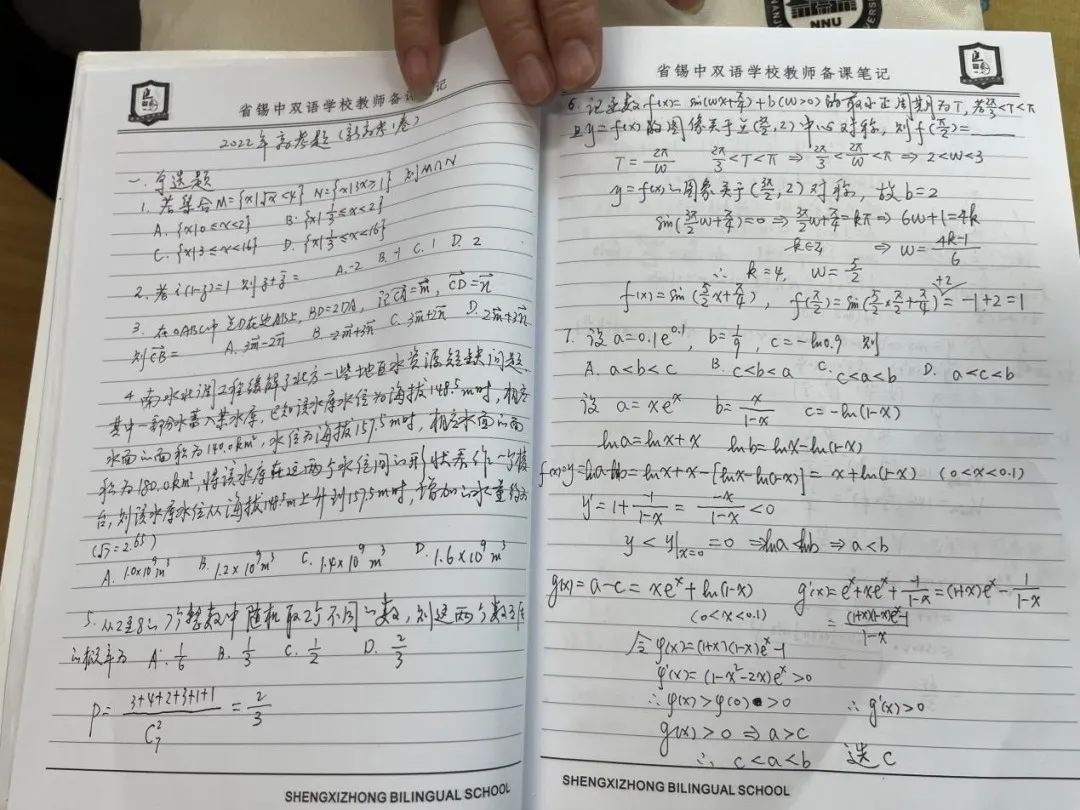 NNU
省锡中双语学校教师备课笔记
2022年高考题(新高考1卷)
一.单选题
1. 若集合M={x|√x<4} N={x|3x≥1} 则M∩N
A. {x|0≤x<2} B. {x|1/3≤x<2}
C. {x|3≤x<16} D. {x|1/3≤x<16}
2. 若i(1-z)=1 则z+z̄= A.-2 B.-1 C.1 D.2
3. 在△ABC中 点D在边AB上, BD=2DA, 记CA=m, CD=n
则CB= A. 3m-2n B. -2m+3n C. 3m+2n D. 2m+3n
4 南水北调工程缓解了北方一些地区水资源短缺问题,
其中一部分水蓄入某水库, 已知该水库水位为海拔148.5m时, 相应
水面的面积为140.0km², 水位为海拔157.5m时, 相应水面的面
积为180.0km², 将该水库在这两个水位间的形状看作一个棱
台, 则该水库水位从海拔148.5m上升到157.5m时, 增加的水量约为
(√7=2.65)
A. 1.0×10⁹m³ B. 1.2×10⁹m³ C. 1.4×10⁹m³ D. 1.6×10⁹m³
5. 从2至8的7个整数中随机取2个不同的数, 则这两个数互质
的概率为 A. 1/6 B. 1/3 C. 1/2 D. 2/3
P= (3+4+2+3+1+1)/C₇² = 2/3
SHENGXIZHONG BILINGUAL SCHOOL
省锡中双语学校教师备课笔记
6. 记函数f(x)=sin(wx+π/4)+b(w>0)的最小正周期为T, 若2π/3<T<π
且y=f(x)的图像关于点(3π/2,2)中心对称, 则f(π/2)=____
T=2π/w 2π/3<T<π ⇒ 2π/3<2π/w<π ⇒ 2<w<3
y=f(x)的图象关于(3π/2,2)对称, 故b=2
sin(3π/2 w+π/4)=0 ⇒ 3π/2 w+π/4=kπ ⇒ 6w+1=4k
k∈Z ⇒ w=(4k-1)/6
∴ k=4, w=5/2
f(x)=sin(5/2 x+π/4), f(π/2)=sin(5/2×π/2+π/4)+2=-1+2=1
7. 设a=0.1e^0.1, b=1/9, c=-ln0.9 则
A. a<b<c B. c<b<a C. c<a<b D. a<c<b
设 a=xe^x b=x/(1-x) c=-ln(1-x)
lna=lnx+x lnb=lnx-ln(1-x)
f(x)=y=lna-lnb=lnx+x-[lnx-ln(1-x)]=x+ln(1-x) (0<x<0.1)
y'=1+(-1)/(1-x)=(-x)/(1-x)<0
y<y|x=0=0 ⇒lna<lnb ⇒ a<b
g(x)=a-c=xe^x+ln(1-x) g'(x)=e^x+xe^x+(-1)/(1-x)=(1+x)e^x-1/(1-x)
(0<x<0.1) =((1+x)(1-x)e^x-1)/(1-x)
令φ(x)=(1+x)(1-x)e^x-1
φ'(x)=(1-x²-2x)e^x>0
∴φ(x)>φ(0) >0 ∴g'(x)>0
g(x)>0 ⇒a>c
∴ c<a<b 选C
SHENGXIZHONG BILINGUAL SCHOOL